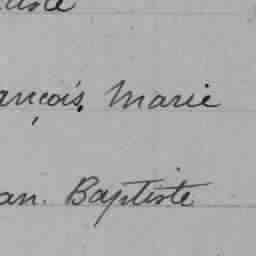 ançois, Marie
an. Baptiste